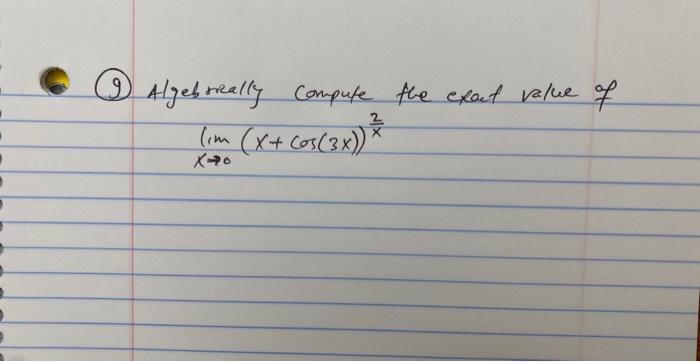 9 Algebraically compute the exact value of
lim (x + cos(3x))^(2/x)
x→0